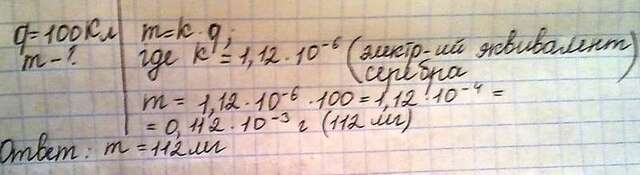 q=100Кл m=k·q;
m-? где k=1,12·10⁻⁶ (электр-ий эквивалент)
серебра
m = 1,12·10⁻⁶·100=1,12·10⁻⁴ =
= 0,112·10⁻³ г (112 мг)
Ответ: m = 112 мг